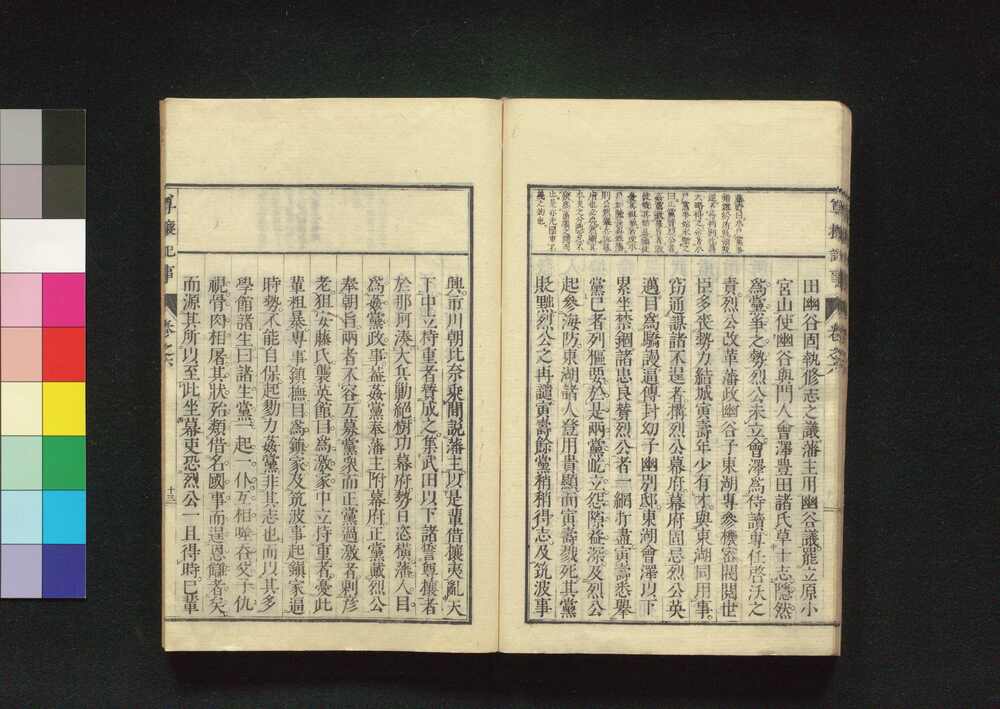 田幽谷固執修志之議藩主用幽谷議罷立原小
宮山使幽谷與門人會澤豊田諸氏草士志隱然
爲黨爭之勢烈公未立會澤爲侍讀專任啓沃之
責烈公改革藩政幽谷子東湖專參機密閥閲世
臣多喪勢力結城寅壽年少有才與東湖同用事
窃通謀諸不逞者構烈公幕府幕府固忌烈公英
邁目爲驕謾逼傳封幼子幽別邸東湖會澤以下
累坐禁錮諸忠良賛烈公者一網打盡寅壽悉舉
黨己者列樞要於是兩黨屹立怨隙益深及烈公
起參海防東湖諸人登用貴顯而寅壽戮死其黨
貶黜烈公之再譴寅壽餘黨稍稍得志及筑波事
興市川朝比奈乘間説藩主以是輩借攘夷亂天
下中立持重者賛成之集武田以下諸誓尊攘者
於那珂湊大兵勦絶樹功幕府勢日恣橫藩人目
爲姦黨政事益姦黨奉藩主附幕府正黨戴烈公
奉朝旨兩者不容互募黨衆而正黨過激者剌彦
老狙安藤氏襲英館目爲激家中立持重者憂此
輩粗暴專事鎮撫目爲鎮家及筑波事起鎮家逼
時勢不能自保起勠力姦黨非其志也而以其多
學館諸生曰諸生黨一起一仆互相啀呑父子仇
視骨肉相屠其狀殆類借名國事而逞恩讎者矣
而源其所以至此坐幕吏恐烈公一旦得時己輩
尊攘記事
卷之六
十三